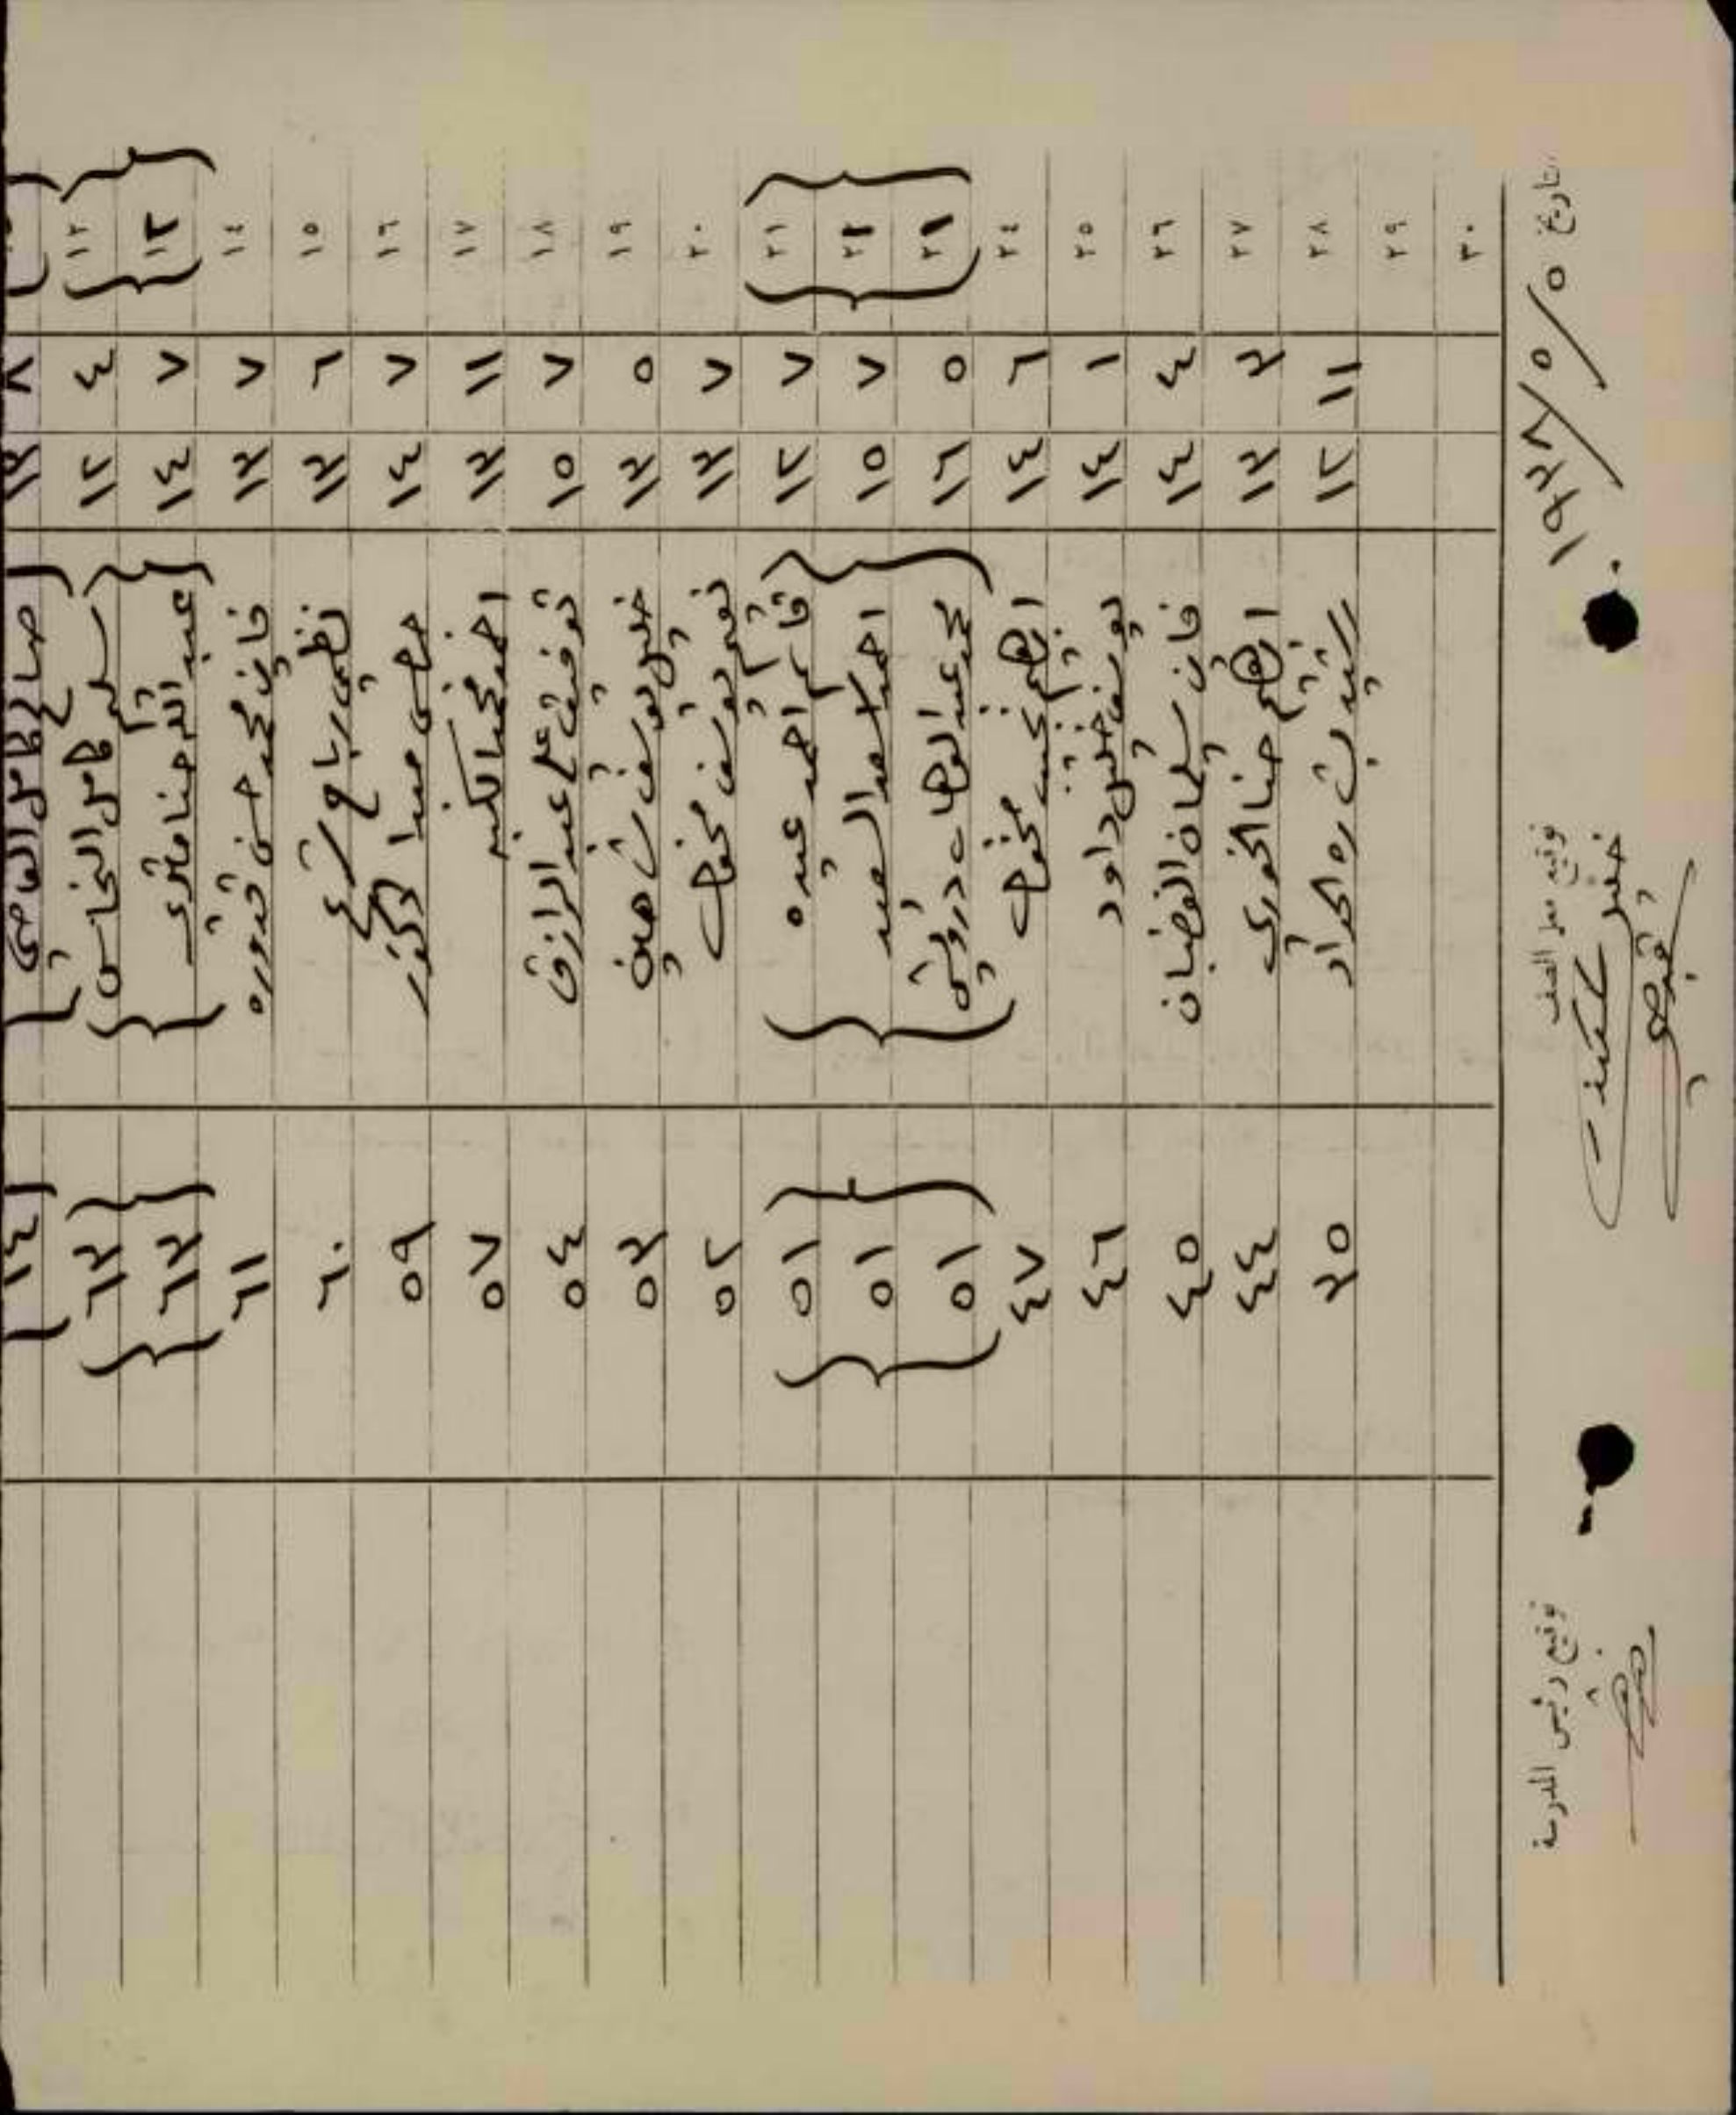 ٨ ١٣ صالح كامل القاضي ٦٤
١٢ ٤ ١٢ سليم كامل النحاس ٦٣
١٢ ٧ ١٤ عبد الله حنا ٦٣
١٤ ٧ ١٣ فايز محمد حسن قدوره ٦١
١٥ ٦ ١٣ نظمي رباح ٦٠
١٦ ٧ ١٤ ميدا ٥٩
١٧ ١١ ١٣ احمد محمد الكبر ٥٧
١٨ ٧ ١٥ توفيق علي عبد الرازق ٥٤
١٩ ٥ ١٣ خليل يوسف شاهين ٥٣
٢٠ ٧ ١٣ نعيم يوسف مخول ٥٢
٢١ ٧ ١٢ قاسم احمد عبده ٥١
٢١ ٧ ١٥ احمد اسعد السعيد ٥١
٢١ ٥ ١٦ محمد عبد الوهاب درويش ٥١
٢٤ ٦ ١٤ ابراهيم نجيب مخول ٤٧
٢٥ ١ ١٤ يوسف خليل داود ٤٦
٢٦ ٤ ١٤ فايز سليمان الغضبان ٤٥
٢٧ ٣ ١٣ ابراهيم حنا الخوري ٤٤
٢٨ ١١ ١٢ رشيد بشاره الحداد ٣٥
٢٩
٣٠
تاريخ ٥/٥/١٩٣٨ توقيع معلم الصف توقيع رئيس المدرسة